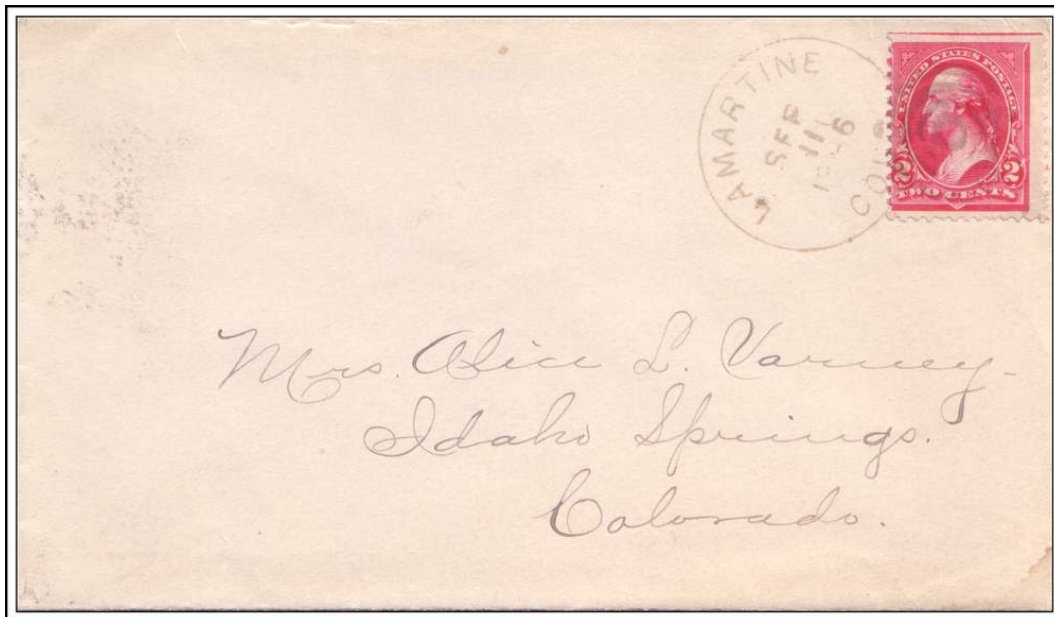 LAMARTINE
SEP
11
COLO
UNITED STATES POSTAGE
2 2
TWO CENTS
Mrs. Alice L. Varney.
Idaho Springs.
Colorado.